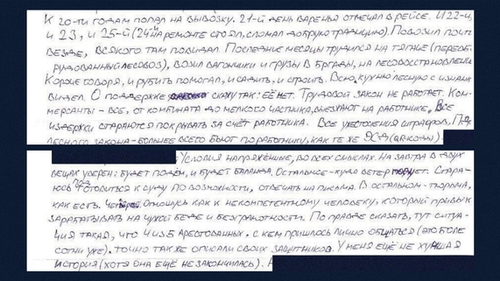 К 20-ти годам попал на вывозку. 21-й день варенья отмечал в рейсе. И 22-й,
и 23, и 25-й (24 на ремонте стоял, сломал добрую традицию). Повозил почти
везде, всякого там повидал. Последние месяцы трудился на тягаче (переобо-
рудованный лесовоз), возил вагончики и грузы в бригады, на лесовосстановлен
Короче говоря, и рубить помогал, и садить, и строить. Всю кухню лесную с изнанк
видел. О поддержке скажу так: её нет. Трудовой закон не работает. Ком-
мерсанты - все, от комбината до мелкого частника, выезжают на работнике. Все
издержки стараются покрывать за счёт работника. Все ужесточения штрафов,
лесного закона - больнее всего бьют по работнику, как те же
Условия напряжённые, во всех смыслах. На завтра в двух
вещах уверен: будет подъём, и будет баланда. Остальное - куда ветер подует. Стара-
юсь готовиться к суду по возможности, отвечать на письма. В остальном - тюрьма,
как есть. отношусь как к некомпетентному человеку, который привык
зарабатывать на чужой беде и безграмотности. По правде сказать, тут ситуа-
ция такая, что 4 из 5 арестованных, с кем пришлось лично общаться (а это боле
сотни уже), точно так же описали своих защитников. У меня ещё не худшая
история (хотя она ещё не закончилась).